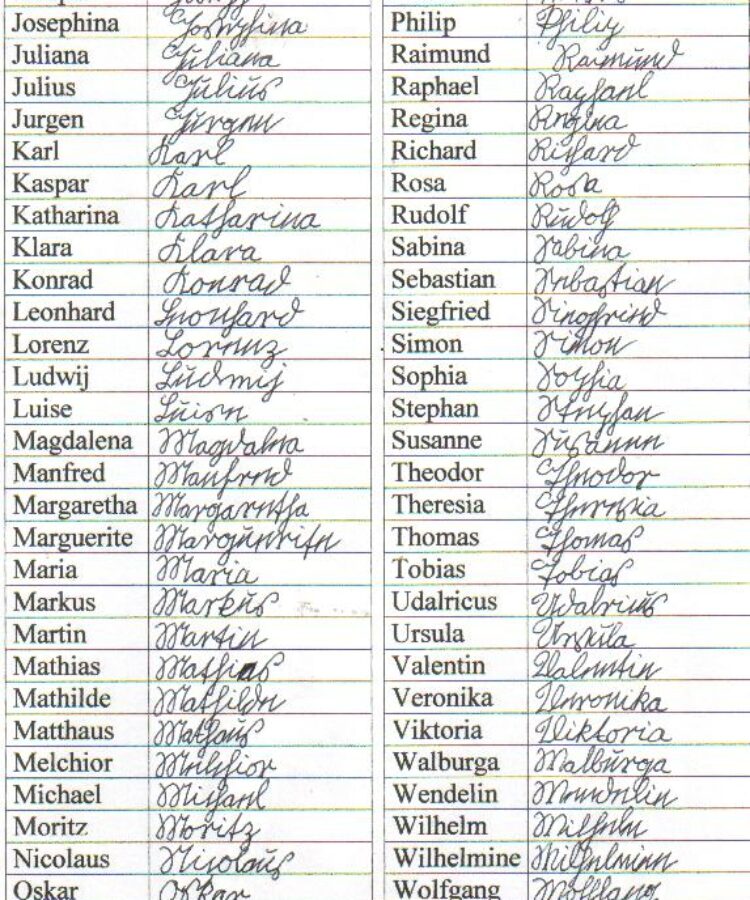 Josephina Josephina
Juliana Juliana
Julius Julius
Jurgen Jürgen
Karl Karl
Kaspar Karl
Katharina Katharina
Klara Klara
Konrad Konrad
Leonhard Leonhard
Lorenz Lorenz
Ludwij Ludwij
Luise Luise
Magdalena Magdalena
Manfred Manfred
Margaretha Margaretha
Marguerite Marguerite
Maria Maria
Markus Markus
Martin Martin
Mathias Mathias
Mathilde Mathilde
Matthaus Mathaus
Melchior Melchior
Michael Michael
Moritz Moritz
Nicolaus Nicolaus
Oskar Oskar
Philip Philip
Raimund Raimund
Raphael Raphael
Regina Regina
Richard Richard
Rosa Rosa
Rudolf Rudolf
Sabina Sabina
Sebastian Sebastian
Siegfried Siegfried
Simon Simon
Sophia Sophia
Stephan Stephan
Susanne Susanne
Theodor Theodor
Theresia Theresia
Thomas Thomas
Tobias Tobias
Udalricus Udalricus
Ursula Ursula
Valentin Valentin
Veronika Veronika
Viktoria Viktoria
Walburga Walburga
Wendelin Wendelin
Wilhelm Wilhelm
Wilhelmine Wilhelmine
Wolfgang Wolfgang